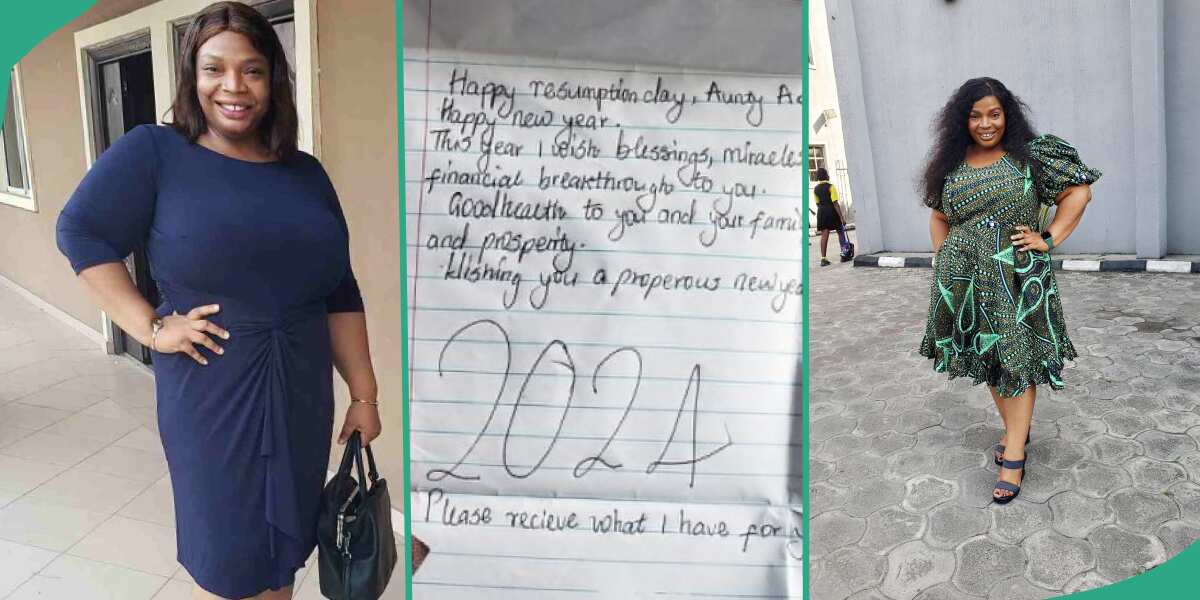 Happy resumption day, Aunty A
Happy new year.
This year I wish blessings, miracles
financial breakthrough to you.
Goodhealth to you and your famil
and prosperity.
Wishing you a properous new yea
2024
Please recieve what I have for y